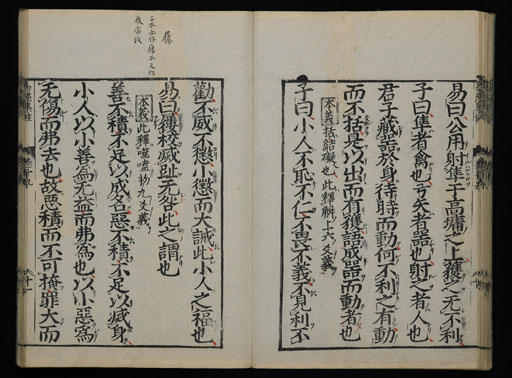 易曰公用射隼于高墉之上獲之无不利
子曰隼者禽也弓矢者器也射之者人也
君子藏器於身待時而動何不利之有動
而不括是以出而有獲語成器而動者也
本義括結礙也此釋解上六爻義
子曰小人不恥不仁不畏不義不見利不
勸不威不懲小懲而大誡此小人之福也
易曰屨校滅趾无咎此之謂也
本義此釋噬嗑初九爻義
善不積不足以成名惡不積不足以滅身
小人以小善為无益而弗為也以小惡為
无傷而弗去也故惡積而不可掩罪大而